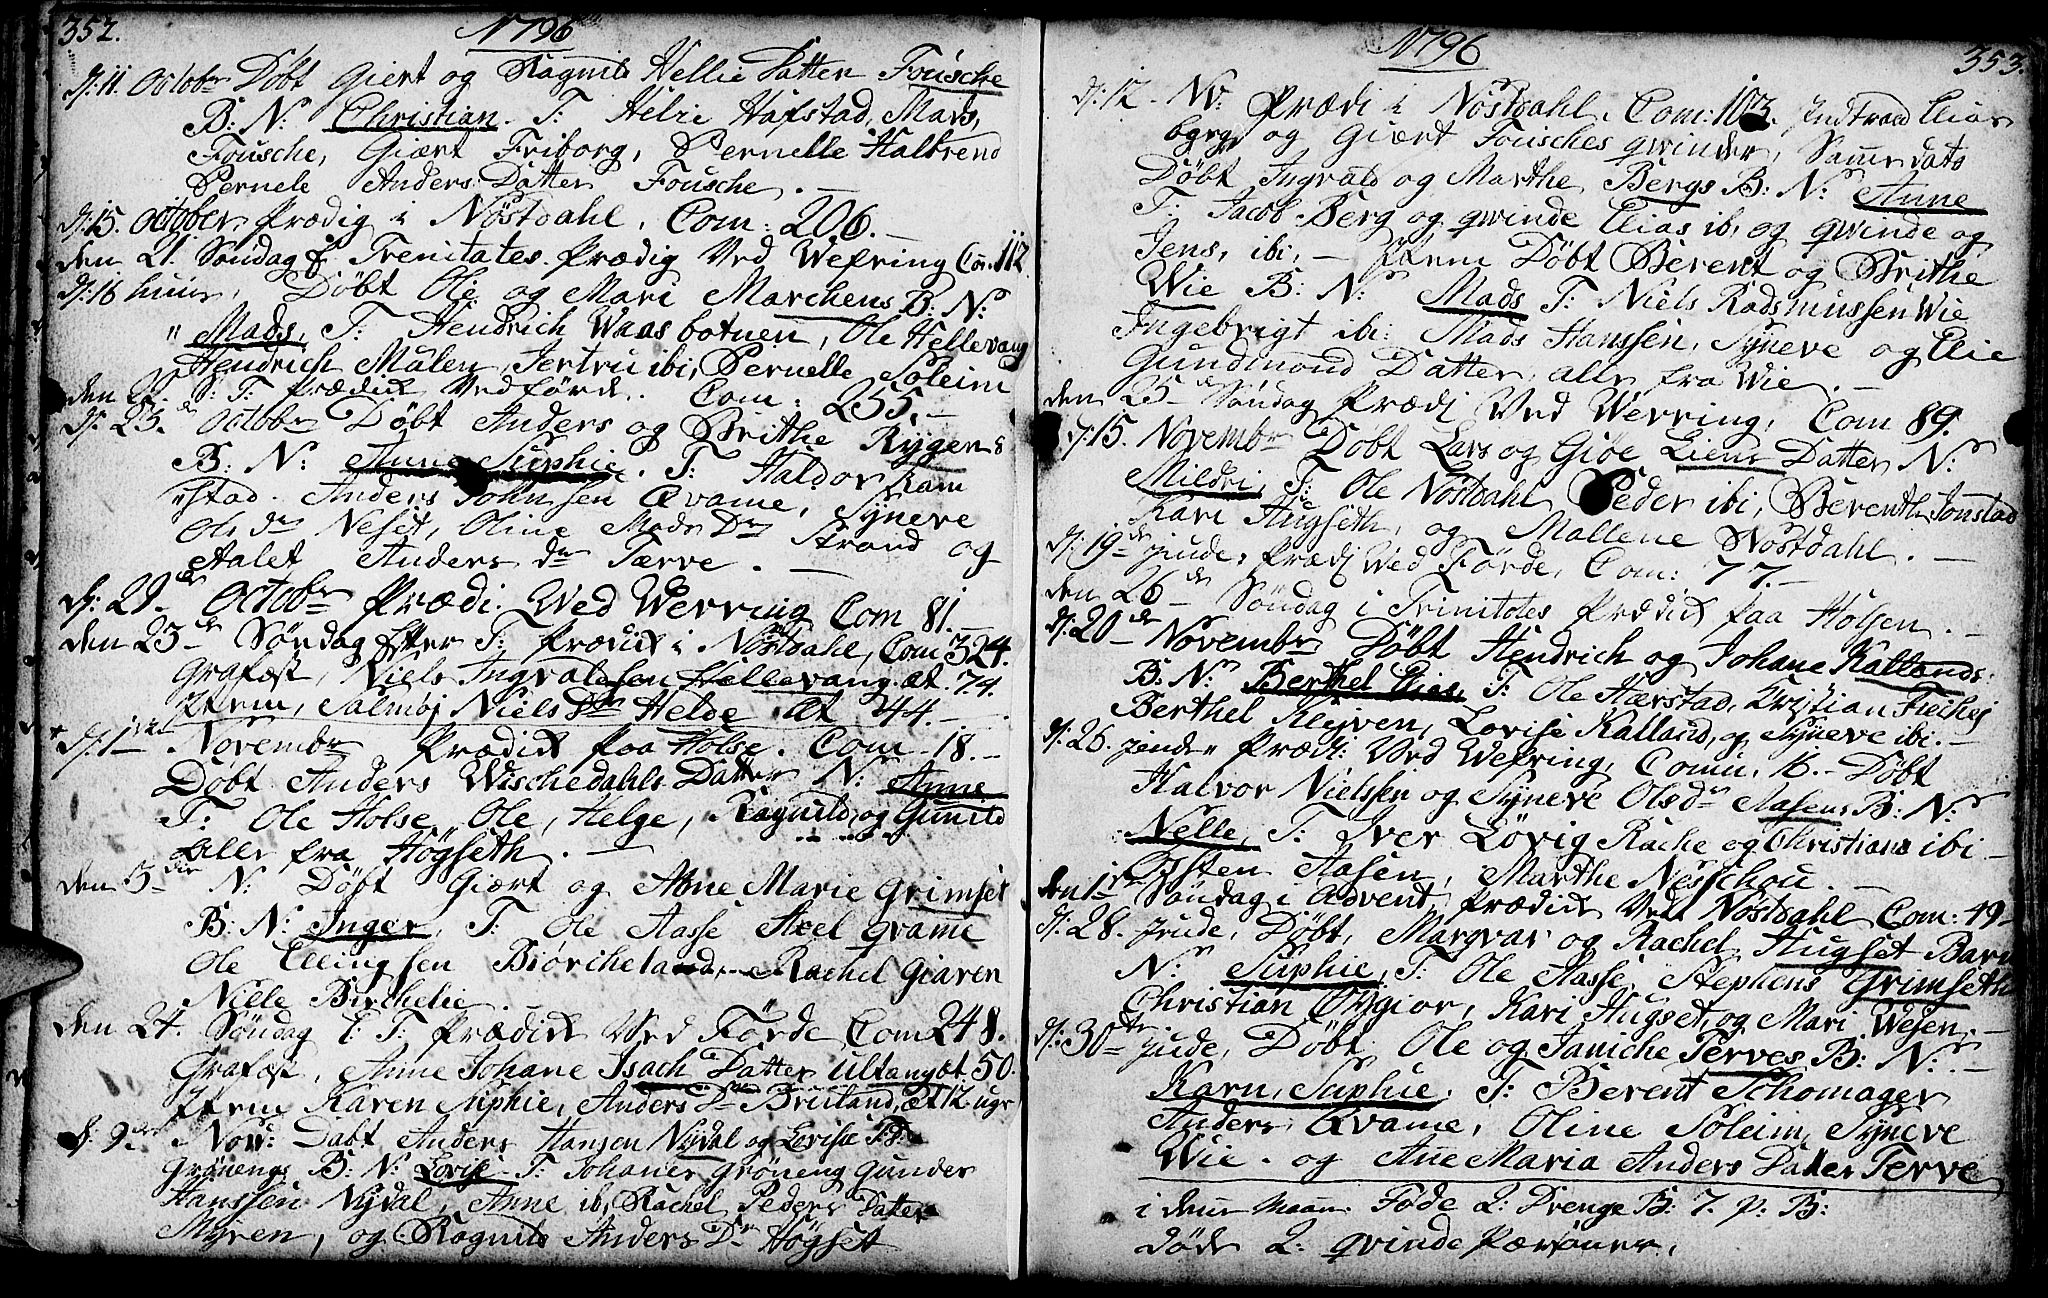 352. 1796
d: 11. Octobr Døbt Giert og Ragnild Hellie Datter Fousche
B: N: Christian. T: Helie Hafstad, Mads,
Fousche, Giært Friborg, Pernelle Haltrend
Pernele Anders Datter Fousche. —
d: 15. October Prædig i Nøstdahl, Com: 206. —
den 21. Søndag f Trenitates Prædig Ved Wefring Com. 112
d: 16 huius, Døbt Ole og Mari Marchens B: N:
" Mads, T: Hendrich Waasbotnen, Ole Hellevang
Hendrich Mulen, Jertru ibi, Pernelle Soleim
den 22. S: T: Prædick Ved Førde. Com: 255. —
d: 23. Octobr Døbt Anders og Brithe Rygen
B: N: Anne Suphie. T: Haldor Ram
stad. Anders Johnsen Qvame, Syneve
Ols dr Neset, Oline Mads Dr Strand og
Aalet Anders dr Tærve. —
d: 29. Octobr Prædi. Ved Werring Com 81. —
den 23 Søndag Efter T: Prædick i Nøstdahl, Com 324.
Grafæst, Niels Ingvaldsen Hellevang. æt. 74.
Item, Salmøj Niels Dr Helde æt 44. —
d: 1 Novembr Prædick paa Holse. Com. 18. —
Døbt Anders Wischedahls Datter N: Anne
T: Ole Holse, Ole, Helge, Ragnild, og Gunild
Alle fra Høgseth. —
den 5 N: Døbt Giært og Anne Marie Grimset
B: N: Inger, T: Ole Aasse Axel Qvame
Ole Ellingsen Biørcheland, Rachel Giaren
Niele Birchelie
den 24. Søndag E: T: Prædick Ved Førde Com 248.
Grafæst, Anne Johane Isach Datter Ultang æt 50.
Item Karen Suphie, Anders Dr Breiland, æt 12 ugr
d. 9 Nov: Døbt Anders Hansen Nydal og Lovise
Grønengs B: N: Lovise T: Johanes Grøneng Gunder
Hanssen Nydal, Anne ib, Rachel Peders Datter
Myren, og Ragnild Anders Dr Høgset
1796 353.
d: 12. Nv: Prædi i Nøstdahl. Com: 103. Indtraad Elias
og Giært Fousches qvinder, Samme dato
Døbt Ingvald og Marthe Bergs B: N: Anne
T: Jacob Berg og qvinde Elias ib, og qvinde og
Jens, ibi, — Item Døbt Berent og Brithe
Wie B: N: Mads T: Niels Radsmussen Wie
Ingebrigt ibi: Mads Hanssen, Syneve og Elie
Gundmond Datter, alle fra Wie. —
den 25 Søndag Prædi Ved Werring, Com 89.
d: 15. Novembr Døbt Lars og Giøe Liens Datter N:
Mildri, T: Ole Nøstdahl Peder ibi, Berenth Jonstad
Kari Hugseth, og Mallene Nøstdahl. —
d: 19 jude, Prædi Ved Førde, Com: 77. —
den 26 Søndag i Trinitotes Prædick paa Holsen. —
d: 20 Novembr Døbt Hendrich og Johane Kallands:
B: N: Berthel Elias, T: Ole Hærstad, Kristian
Berthel Kleyven, Lovise Kalland, og Syneve ibi. —
d: 26. jude Prædi: Ved Wefring, Comn. 16. — Døbt
Halvor Nielssen og Syneve Olsdr Aasens B: N:
Nelle, T: Iver Løvig Rache og Christians ibi
Østen Aasen, Marthe Nesschou. —
den 1 Søndag i Advent, Prædick Ved Nøstdahl Com: 49 —
d: 28. jude, Døbt, Margvar og Rachel Hugset Barn
N: Suphie, T: Ole Aasse, Stephens Grimseth
Christian Øygior, Kari Hugset, og Mari Wejen. —
d: 30 jude, Døbt Ole og Janiche Terves B: N: —
Karn Suphie. T: Berent Schomager
Anders Qvame, Oline Soleim, Syneve
Wie. og Ane Maria Anders Datter Terve
i denne Maan. Føde 2: Drenge B: 7. P: B:
døde 2: qvinde Personer.